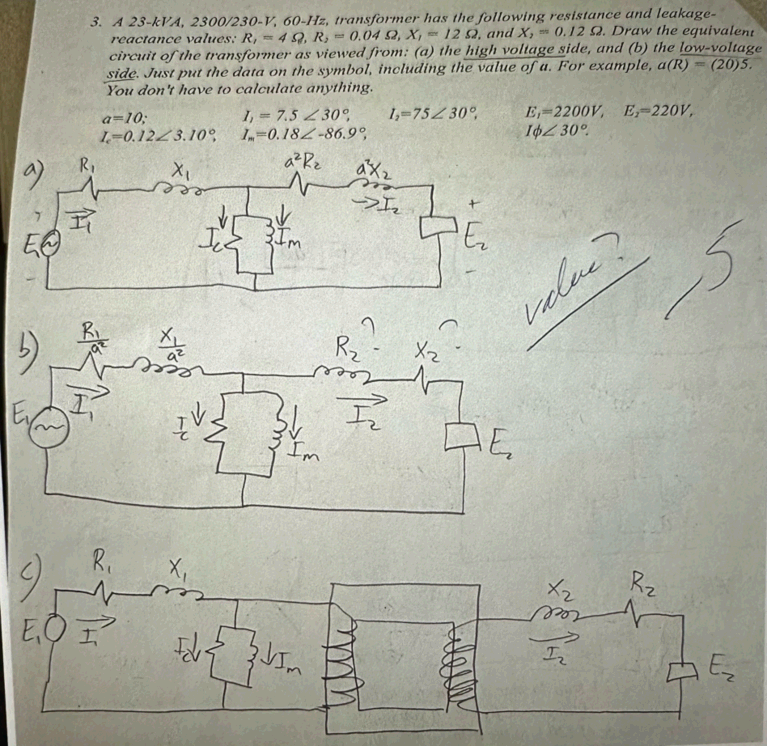 3. A 23-kVA, 2300/230-V, 60-Hz, transformer has the following resistance and leakage-
reactance values: R₁ = 4 Ω, R₂ = 0.04 Ω, X₁ = 12 Ω, and X₂ = 0.12 Ω. Draw the equivalent
circuit of the transformer as viewed from: (a) the high voltage side, and (b) the low-voltage
side. Just put the data on the symbol, including the value of a. For example, a(R) = (20)5.
You don't have to calculate anything.
a=10; I₁ = 7.5 ∠30°, I₂=75∠30°, E₁=2200V, E₂=220V,
I꜀=0.12∠3.10°, Iₘ=0.18∠-86.9°, Iϕ∠30°.
a) R₁ X₁ a²R₂ a²X₂
I₁ → I₂ +
E₁ Ic Im E₂
-
value? 5
b) R₁/a² X₁/a² R₂? X₂?
E₁ I₁ Ic Im I₂ E₂
c) R₁ X₁ X₂ R₂
E₁ I₁ Ic Im I₂ E₂